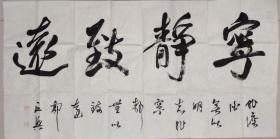 寧靜致遠
非澹
泊
無以
明
志非
寧
靜
無以
致
遠